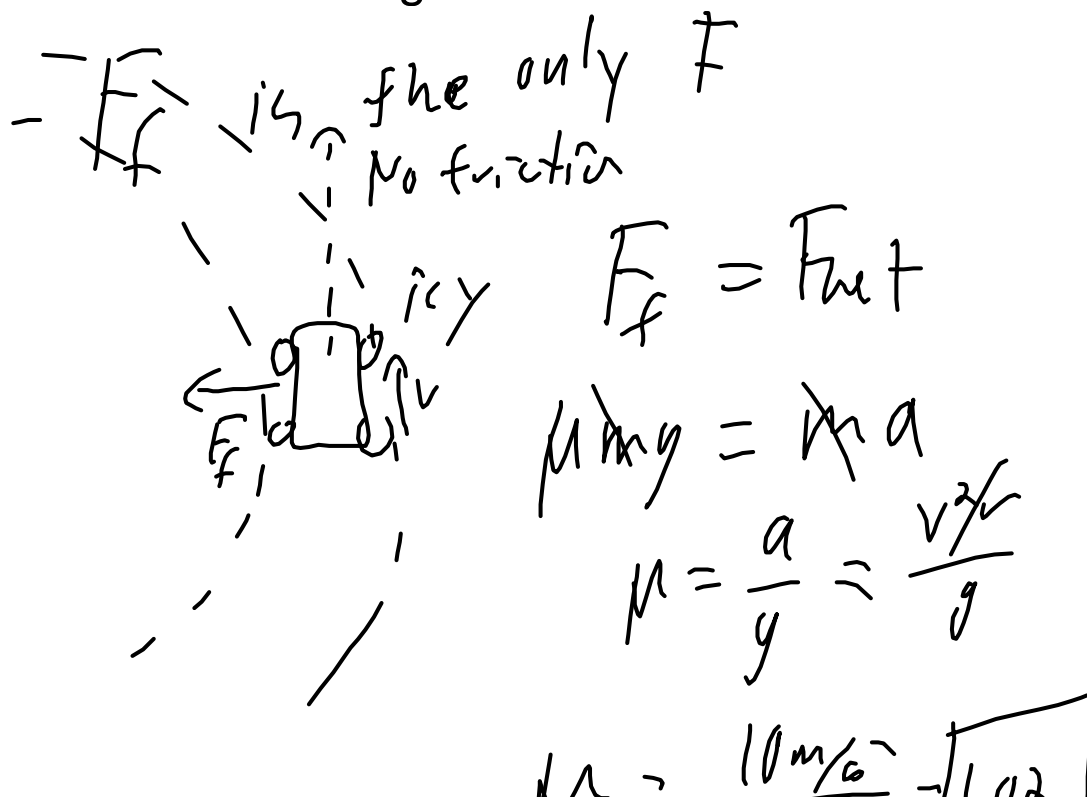 F_f is the only F
No friction
icy
F_f = Fnet
v
F_f
μmg = ma
μ = a/g = v²/r/g
μ = 10 m/s² = 1.02